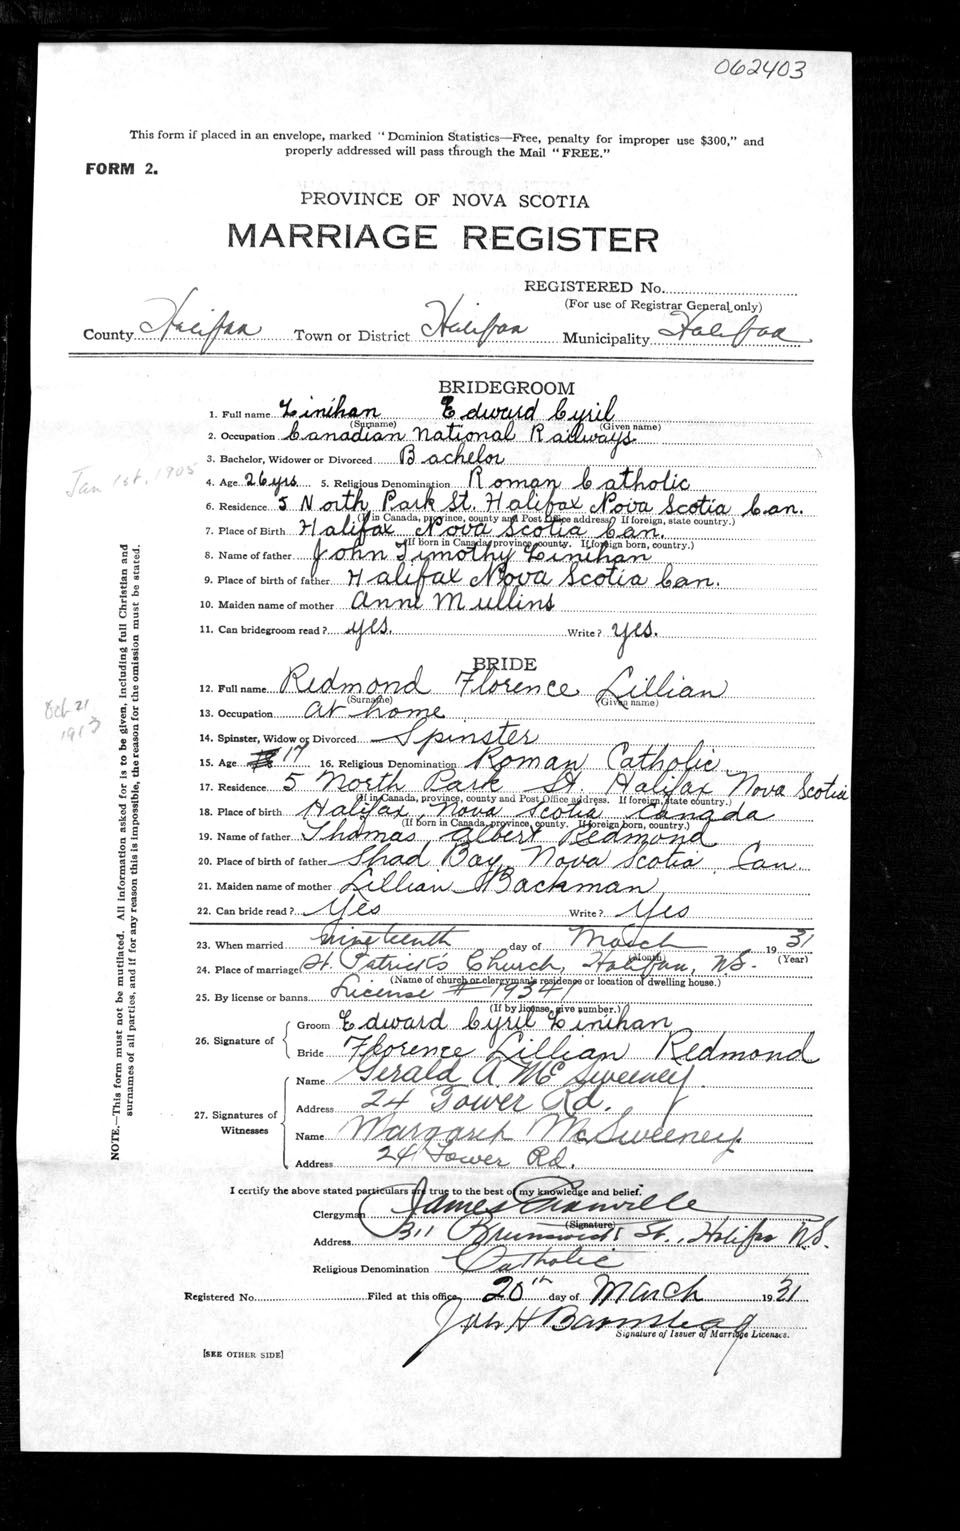 062403
This form if placed in an envelope, marked "Dominion Statistics—Free, penalty for improper use $300," and
properly addressed will pass through the Mail "FREE."
FORM 2.
PROVINCE OF NOVA SCOTIA
MARRIAGE REGISTER
REGISTERED No.
(For use of Registrar General only)
County Halifax Town or District Halifax Municipality Halifax
BRIDEGROOM
1. Full name Linihan Edward Cyril
(Surname) (Given name)
2. Occupation Canadian National Railways.
3. Bachelor, Widower or Divorced Bachelor
Jan 1st, 1905
4. Age 26 yrs. 5. Religious Denomination Roman Catholic
6. Residence 5 North Park St. Halifax Nova Scotia Can.
(If in Canada, province, county and Post Office address. If foreign, state country.)
7. Place of Birth Halifax Nova Scotia Can.
(If born in Canada, province, county. If foreign born, country.)
8. Name of father John Timothy Linihan
9. Place of birth of father Halifax Nova Scotia Can.
10. Maiden name of mother Anne Mullins
11. Can bridegroom read? yes. Write? yes.
BRIDE
12. Full name Redmond Florence Lillian
(Surname) (Given name)
Oct 21
1913
13. Occupation at home
14. Spinster, Widow or Divorced Spinster
15. Age 17 16. Religious Denomination Roman Catholic
17. Residence 5 North Park St. Halifax Nova Scotia
(If in Canada, province, county and Post Office address. If foreign, state country.)
18. Place of birth Halifax, Nova Scotia Canada
(If born in Canada, province, county. If foreign born, country.)
19. Name of father Thomas Albert Redmond
20. Place of birth of father Shad Bay, Nova Scotia, Can
21. Maiden name of mother Lillian Backman
22. Can bride read? Yes Write? Yes
23. When married nineteenth day of March 19 31
(Month) (Year)
24. Place of marriage St. Patrick's Church, Halifax, N.S.
(Name of church or clergyman's residence or location of dwelling house.)
25. By license or banns License #
(If by license, give number.)
26. Signature of
Groom Edward Cyril Linihan
Bride Florence Lillian Redmond
27. Signatures of
Witnesses
Name Gerald A. McSweeney.
Address 24 Tower Rd.
Name Margaret McSweeney
Address 24 Tower Rd.
I certify the above stated particulars are true to the best of my knowledge and belief.
Clergyman James Granville
(Signature)
Address 311 Brunswick St., Halifax N.S.
Religious Denomination Catholic
Registered No. Filed at this office 20th day of March 19 31
Jas H Barnstead
Signature of Issuer of Marriage Licenses.
[SEE OTHER SIDE]
NOTE.—This form must not be mutilated. All information asked for is to be given, including full Christian and
surnames of all parties, and if for any reason this is impossible, the reason for the omission must be stated.